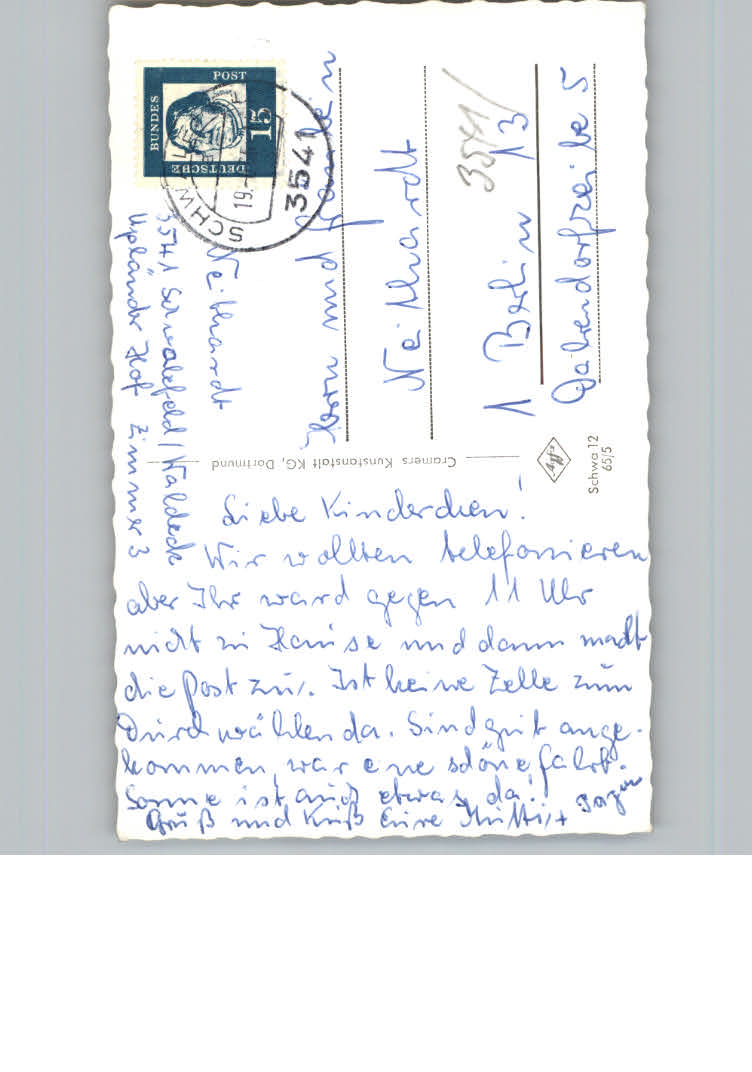 DEUTSCHE
BUNDES
POST
15
3541
SCHW
19.
Neithardt
3541 Schwalefeld / Waldeck
Upländer Hof Zimmer 3
Herrn und
Neithardt
3541/
1 Berlin 13
5
Cramers Kunstanstalt KG, Dortmund
Agfa
Schwa 12
65/5
Liebe Kinderchen!
Wir wollten telefonieren
aber Ihr ward gegen 11 Uhr
nicht zu Hause und dann macht
die Post zu. Ist keine Zelle zum
Durchwählen da. Sind gut ange-
kommen, war eine schöne Fahrt.
Sonne ist auch etwas da!
Gruß und Kuß Eure Mutti +